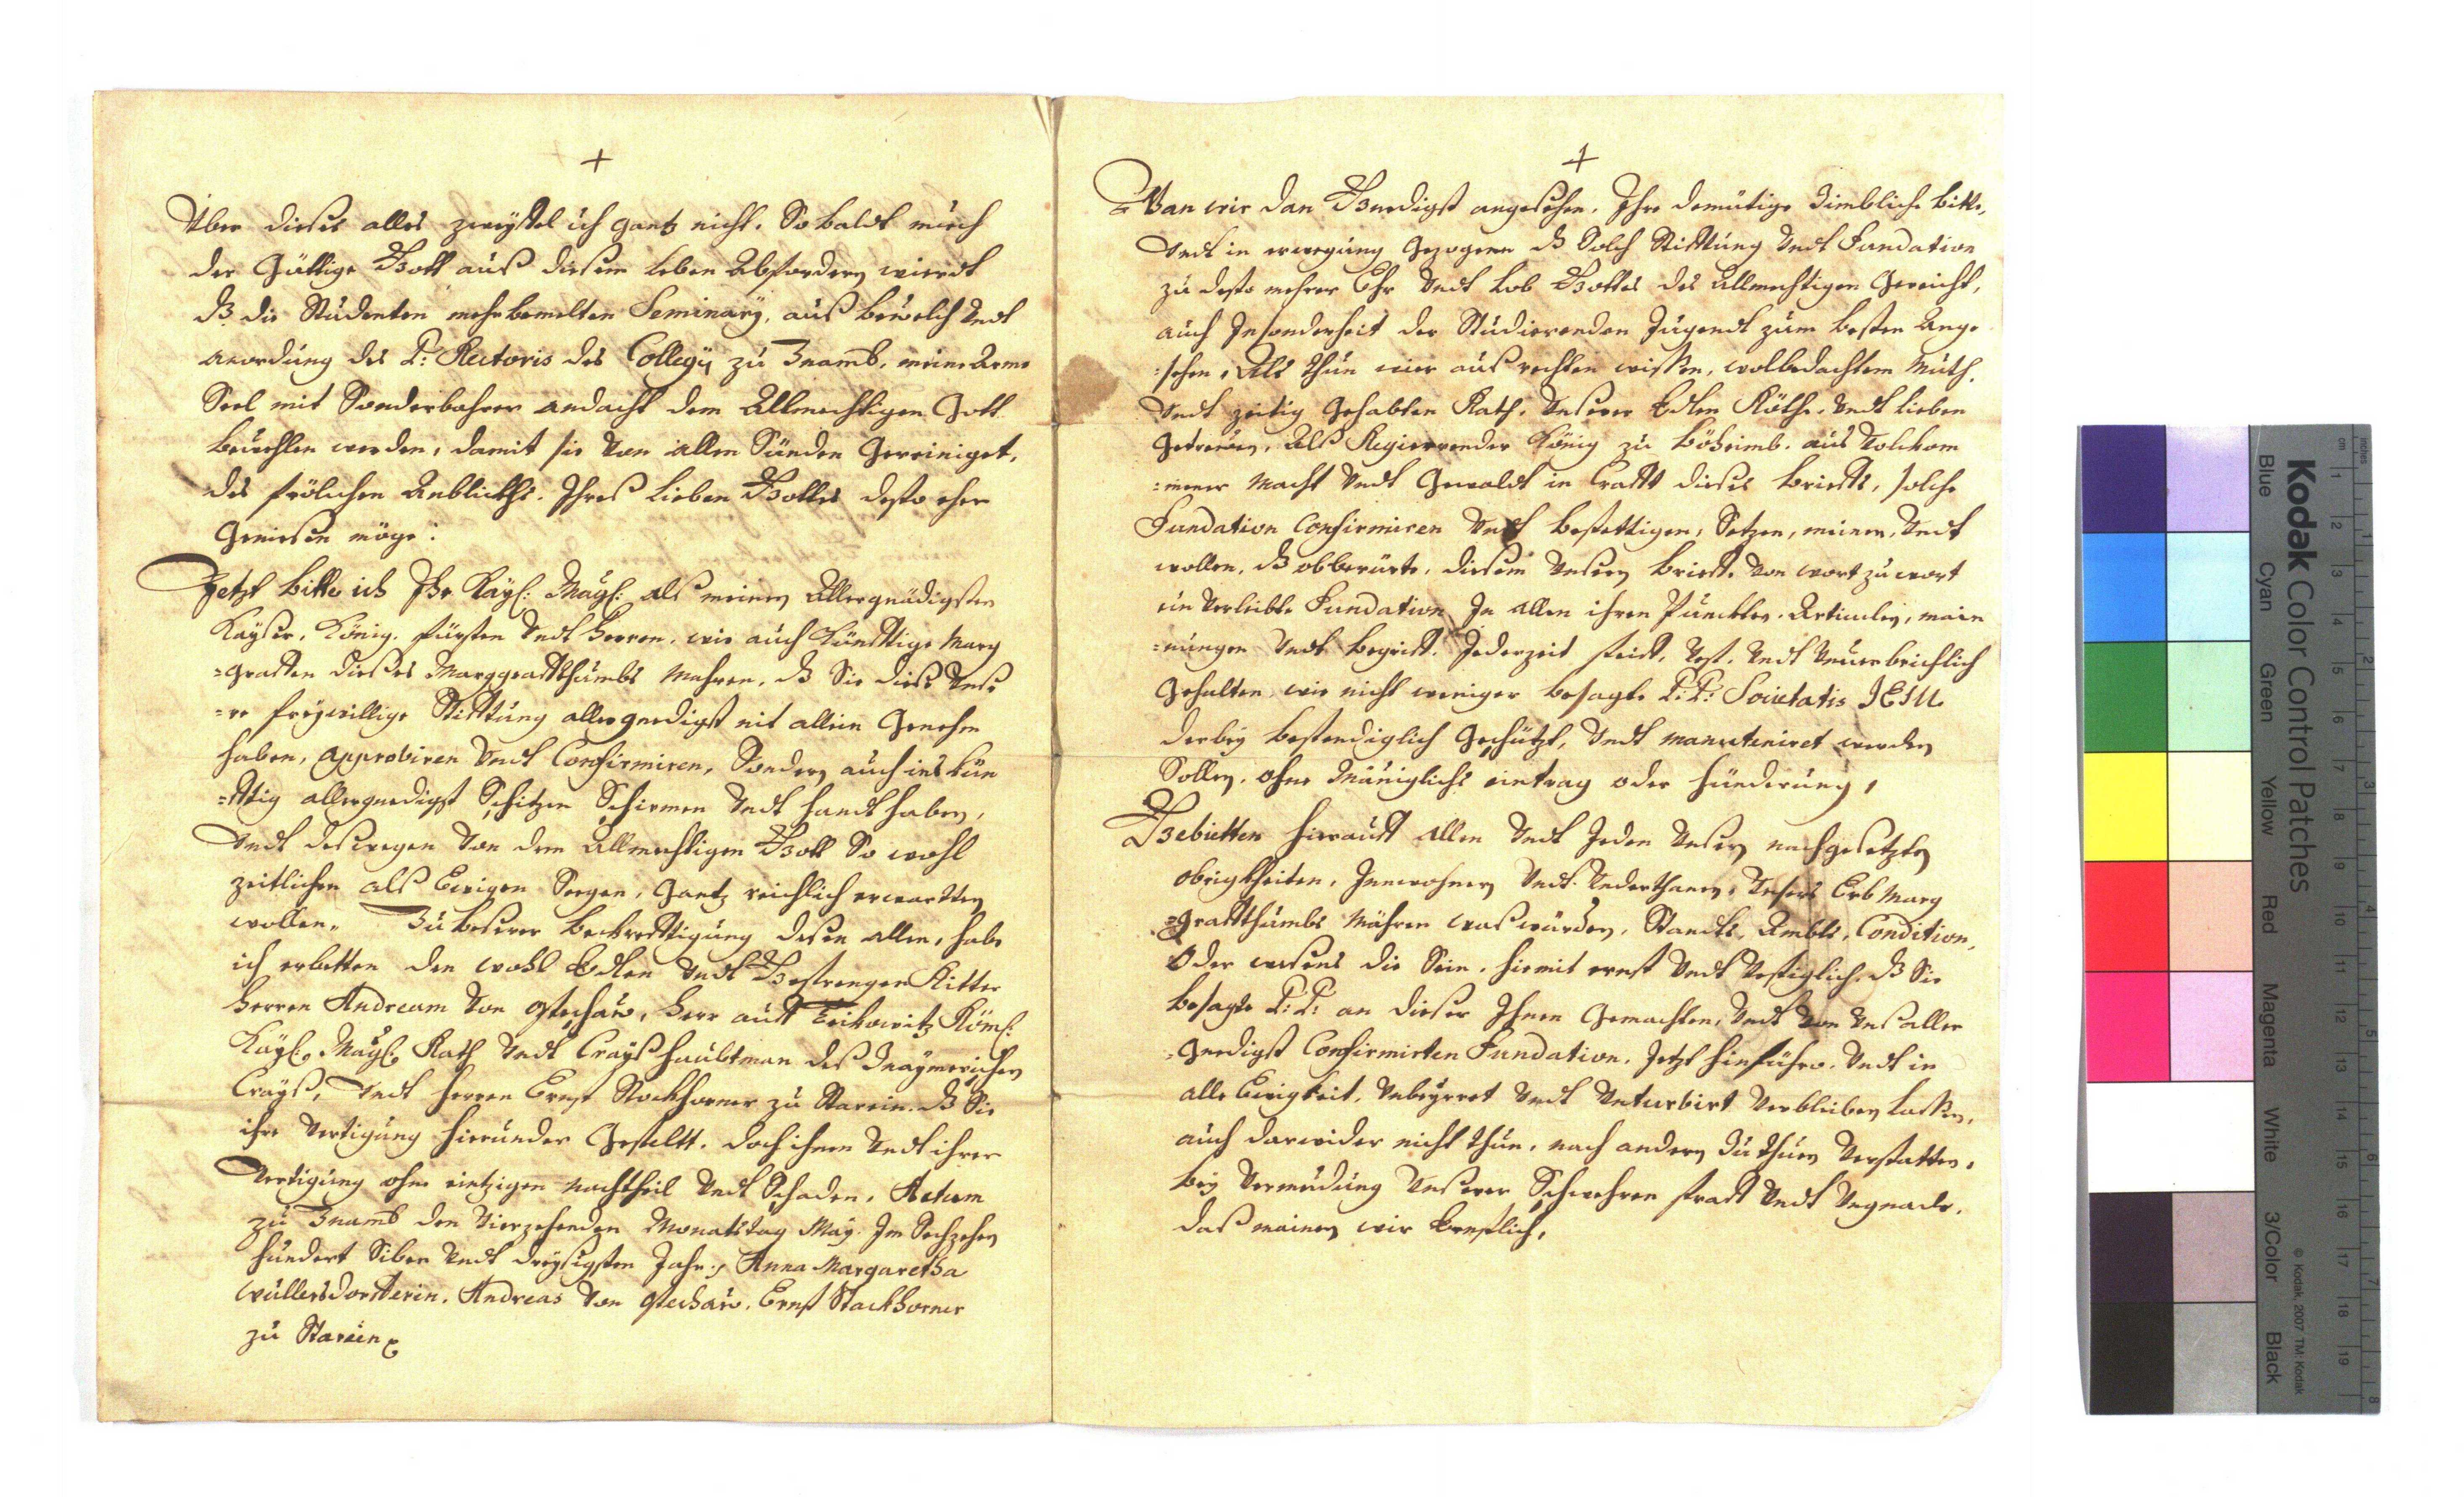 +
Über dieses alles zweyffel ich gantz nicht. So baldt mich
der Güttige Gott auß diesem leben Abfordern wierdt
dß die Studenten mehr bemelten Seminarÿ, auß bevelch Vndt
anordung des P: Rectoris des Collegÿ zu Znamb, meine Arme
Seel mit Sonderbahrer andacht dem Allmechtigen Gott
bevehlen werden, damit sie Von allen Sünden Gereiniget,
des frölichen Anblickhs. Ihres lieben Gottes desto eher
Geniesen möge:
Jetzt bitte ich Ihr Kaÿ: Maÿ: alß meinen Allergnädigsten
Kaÿser, König, fürsten Vndt herren, wie auch Künfftige Marg
=graffen dieses Marggraffthumbs Mahren, dß Sie diese Unse
=re freÿwillige Stifftung allergnedigst nit allein Genehm
haben, approbiren Vndt Confirmiren, Sondern auch ins kün
=fftig allergnedigst Schitzen Schirmen Vndt handthaben,
Vndt deswegen Von dem Allmechtigen Gott So wohl
zeitlichen alß Ewigen Seegen, Gantz reichlich erwartten
wollen. Zu beserer bekrefftigung desen allen, habe
ich erbetten den wohl Edlen Vndt Gestrengen Ritter
herren Andream Von Ostechaw, herr auff Töikowitz Röm:
Kaÿ: Maÿ: Rath Vndt Craÿßhaubtman deß Znaÿmerischen
Craÿß, Vndt herren Ernst Stockhorner zu Starein. dß Sie
ihre Vertigung hierunder Gestelt. doch ihnen Vndt ihrer
Vertigung ohne eintzigen Nachtheil Vndt Schaden. Actum
zu Znamb den Vierzehenden Monatstag Maÿ. Im Sechzehen
hundert Siben Vndt dreÿsigsten Jahr. Anna Margaretha
Wüllersdorfferin. Andreas Von Ostechaw. Ernst Stackhorner
zu Starein
+
Wan wir dan Gnedigst angesehen. Ihre demütige Zimbliche bitte,
Vndt in erwegung Gezogenn dß Solch Stifftung Vndt Fundation
zu desto mehrer Ehr Vndt Lob Gottes des Allmechtigen Gereicht,
auch Insonderheit der Studierenden Jugendt zum besten Ange
=sehen, Als thun wier auß rechten wissen, wolbedachtem Muth,
Vndt zeitig Gehabten Rath, Unserer Edlen Räthe, Vndt lieben
Getrewen, Alß Regierender König zu Böheimb, aus Volckom
=mener Macht Vndt Gewaldt in Crafft dieses briefs, solche
Fundation Confirmiren Vndt bestettigen, Setzen, meinen, Vndt
wollen, dß obberürte, diesem Unsern brieff Von wort zu wort
ein Verleibte Fundation In allen ihren Puncten, Articulen, main
=nungen Vndt begriff. Jederzeit steiff, Vest, Vndt Unverbrichlich
Gehalten, wie nicht weniger besagte P: P: Societatis JESU
derbeÿ bestendiglich Geschützt, Vndt manuteniret werden
Sollen, ohne Mäniglichs eintrag oder hünderung,
Gebietten hierauff allen Vndt Jeden Unsern nachgesetzten
obrigkheiten, Innwohnern Vndt Underthanen, Unsers Erb Marg
=graffthumbs Mähren waß würden, Standts, Ambts, Condition,
Oder wesens die Sein, hiemit ernst Vndt Vestiglich dß Sie
besagte P: P: an dieser Ihnen Gemachten, Vndt Von Unß aller
=Gnedigst Confirmirten Fundation, Jetzt hinführo, Vndt in
alle Ewigkeit, Unbeÿrret Vndt Unturbirt Verbleiben lassen,
auch darwider nicht thun, noch andern Zu thuen Verstatten,
beÿ Vermeidung Unserer Schwehren straff Vndt Ungnade,
daß mainen wir Ernstlich,
inches
cm
Kodak Color Control Patches
Blue Cyan Green Yellow Red Magenta White 3/Color Black
© Kodak, 2007 TM: Kodak